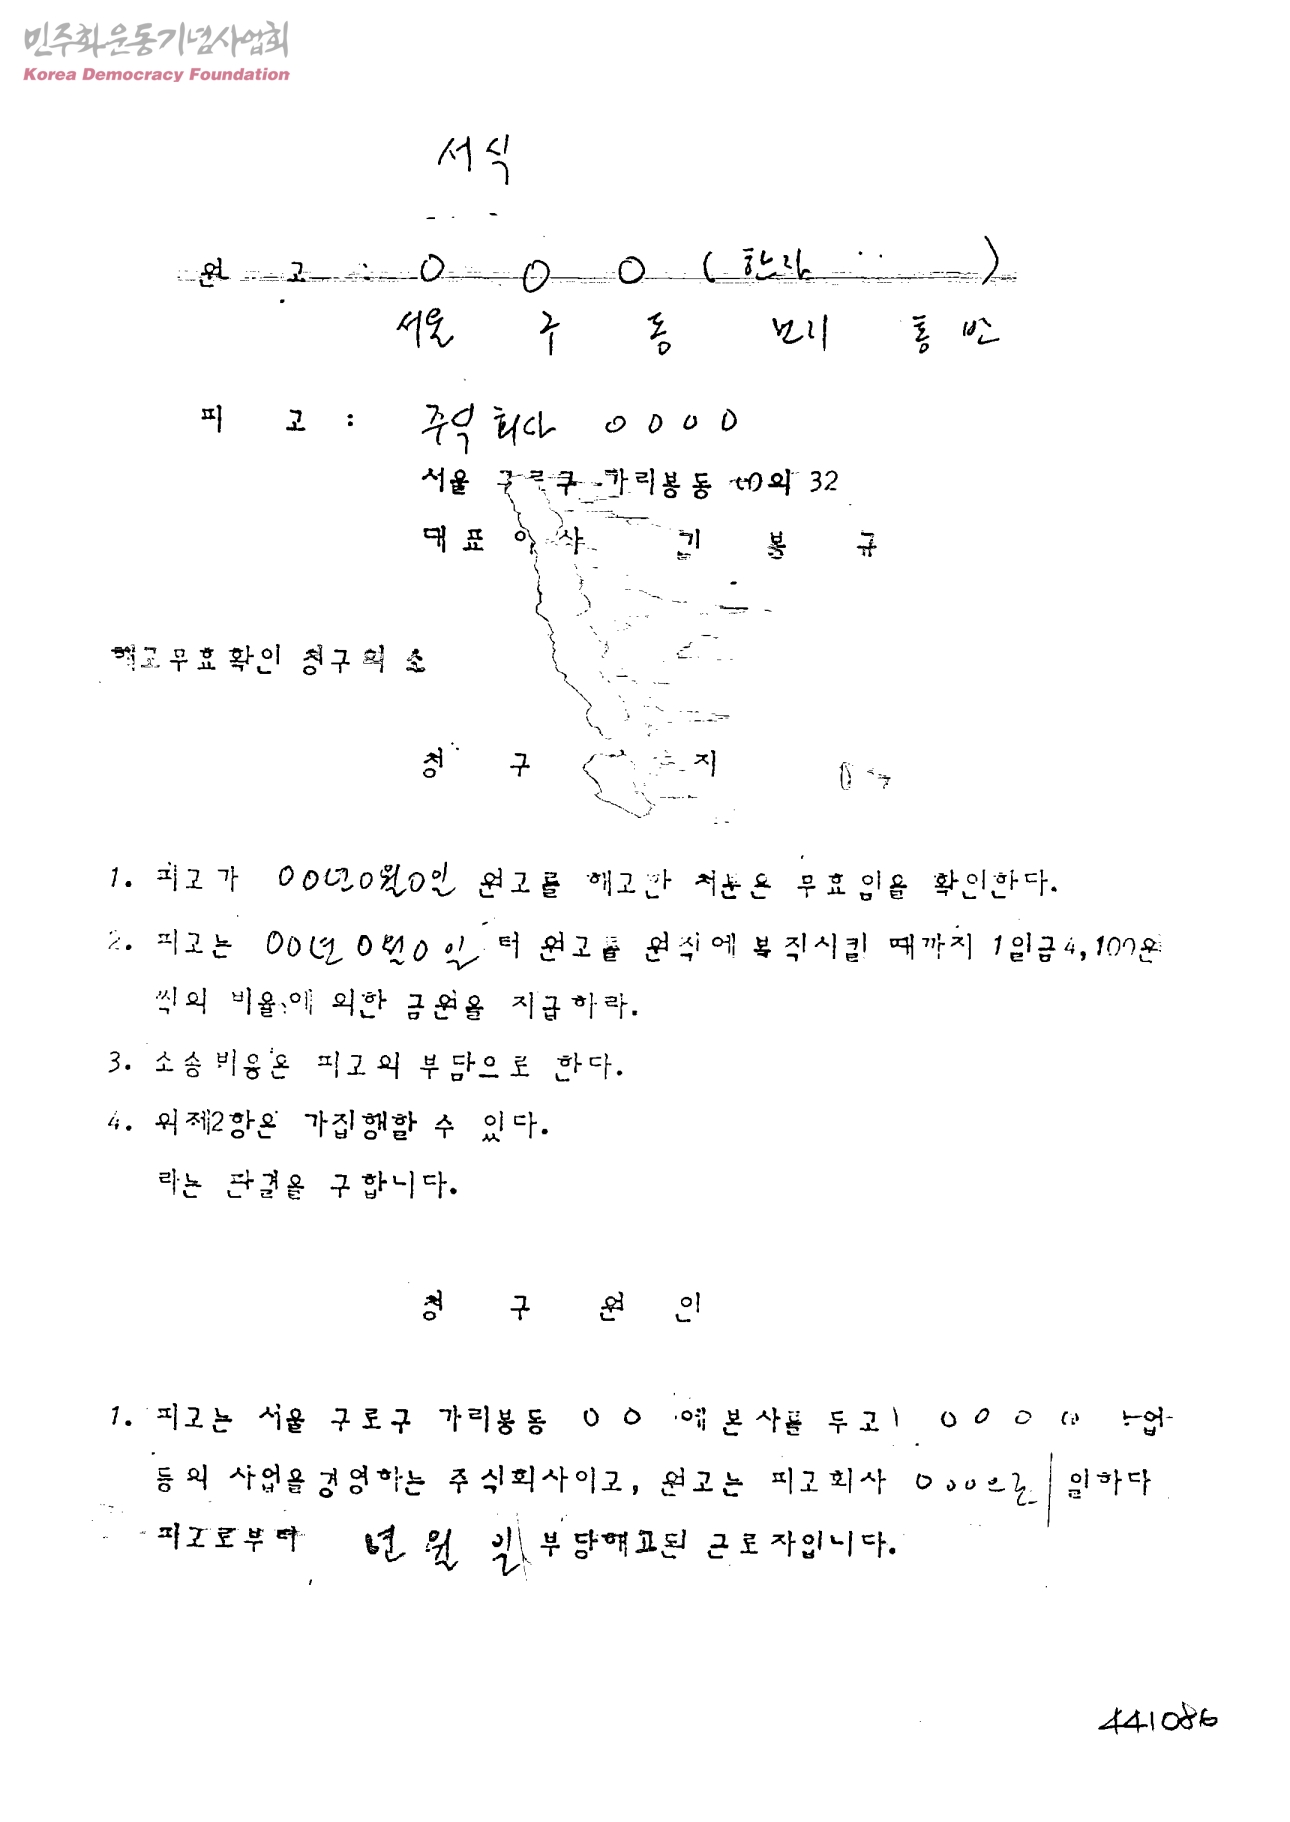 민주화운동기념사업회
Korea Democracy Foundation
서식
원 고 : O O O ( 한자 )
서울 구 동 번지 통 반
피 고 : 주식회사 O O O O
서울 구로구 가리봉동 의 32
대표이사 김 봉 규
해고무효확인 청구의 소
청 구 지
1. 피고가 00년0월0일 원고를 해고한 처분은 무효임을 확인한다.
2. 피고는 00년 0월0일 터 원고를 원직에 복직시킬 때까지 1일금4,100원
씩의 비율에 의한 금원을 지급하라.
3. 소송비용은 피고의 부담으로 한다.
4. 위제2항은 가집행할 수 있다.
라는 판결을 구합니다.
청 구 원 인
1. 피고는 서울 구로구 가리봉동 O O 에 본사를 두고 O O O O 업
등의 사업을 경영하는 주식회사이고, 원고는 피고회사 OOO으로 일하다
피고로부터 년 월 일 부당해고된 근로자입니다.
441086